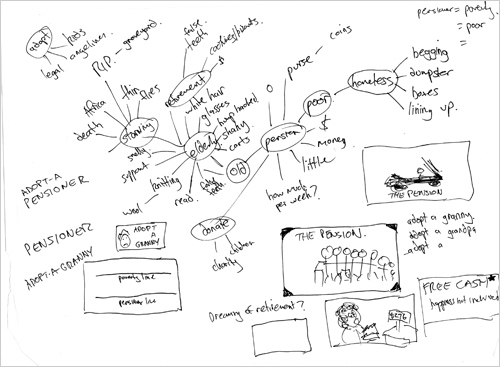 adopt
kids
legal
angelina.
R.I.P. - graveyard
false
teeth
retirement
$
purse - coins
pensioner = poverty
= poor
=
homeless
begging
dumpster
boxes
lining up.
Africa
thin
flies
death
starving
white hair
glasses
hump backed
shaky
carts
elderly
smelly
support
knitting
wool
read.
old
0
poor
pension
$
money
little
how much
per week?
donate
children
charity
ADOPT-A
PENSIONER
PENSIONER
ADOPT-A-GRANNY
ADOPT
A
GRANNY
poverty line
pensioner line
THE PENSION.
THE PENSION
adopt a granny
adopt a grandpa
adopt a
Dreaming of retirement?
$276
FREE CASH*